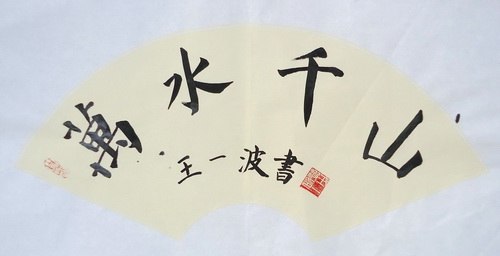 萬水千山
王一波書